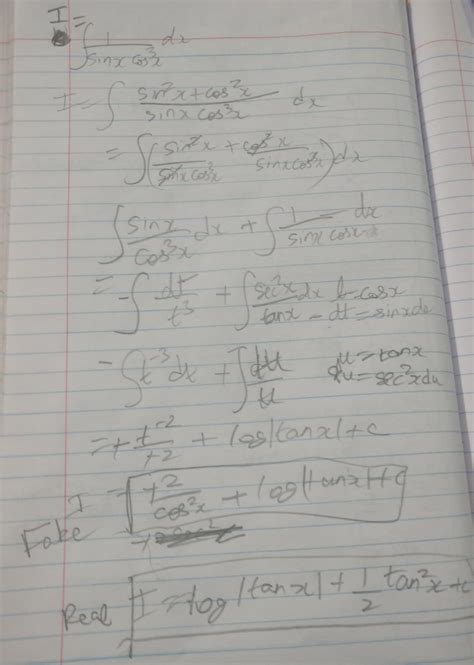 I =
∫ 1/(sinx cos³x) dx
I = ∫ (sin²x + cos²x)/(sinx cos³x) dx
= ∫ (sin²x/(sinx cos³x) + cos²x/(sinx cos³x)) dx
∫ sinx/cos³x dx + ∫ 1/(sinx cosx) dx
= -∫ dt/t³ + ∫ sec²x/tanx dx t = cosx
- dt = sinx dx
- ∫ t⁻³ dx + ∫ du/u u = tanx
du = sec²x dx
= + t⁻²/+2 + log|tanx| + c
Fake I = +2/cos²x + log|tanx| + c
Real I = log|tanx| + 1/2 tan²x + c